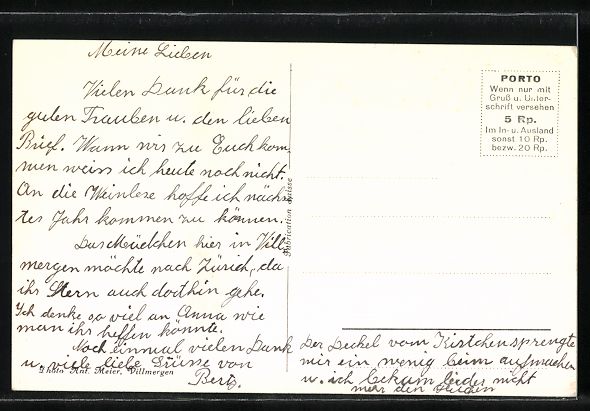 Meine Lieben
Vielen Dank für die
guten Trauben u. den lieben
Brief. Wann wir zu Euch kom-
men weiss ich heute noch nicht.
An die Weinlese hoffe ich nächs-
tes Jahr kommen zu können.
Das Mädchen hier in Vill-
mergen möchte nach Zürich, da
ihr Stern auch dorthin gehe.
Ich denke so viel an Anna wie
man ihr helfen könnte.
Noch einmal vielen Dank
u. viele liebe Grüsse von
Photo Ant. Meier, Villmergen
Berty.
Fabrication Suisse
PORTO
Wenn nur mit
Gruß u. Unter-
schrift versehen
5 Rp.
Im In- u. Ausland
sonst 10 Rp.
bezw. 20 Rp.
Der Deckel vom Kistchen sprengte
mir ein wenig beim aufmachen
u. ich bekam leider nicht
mehr den